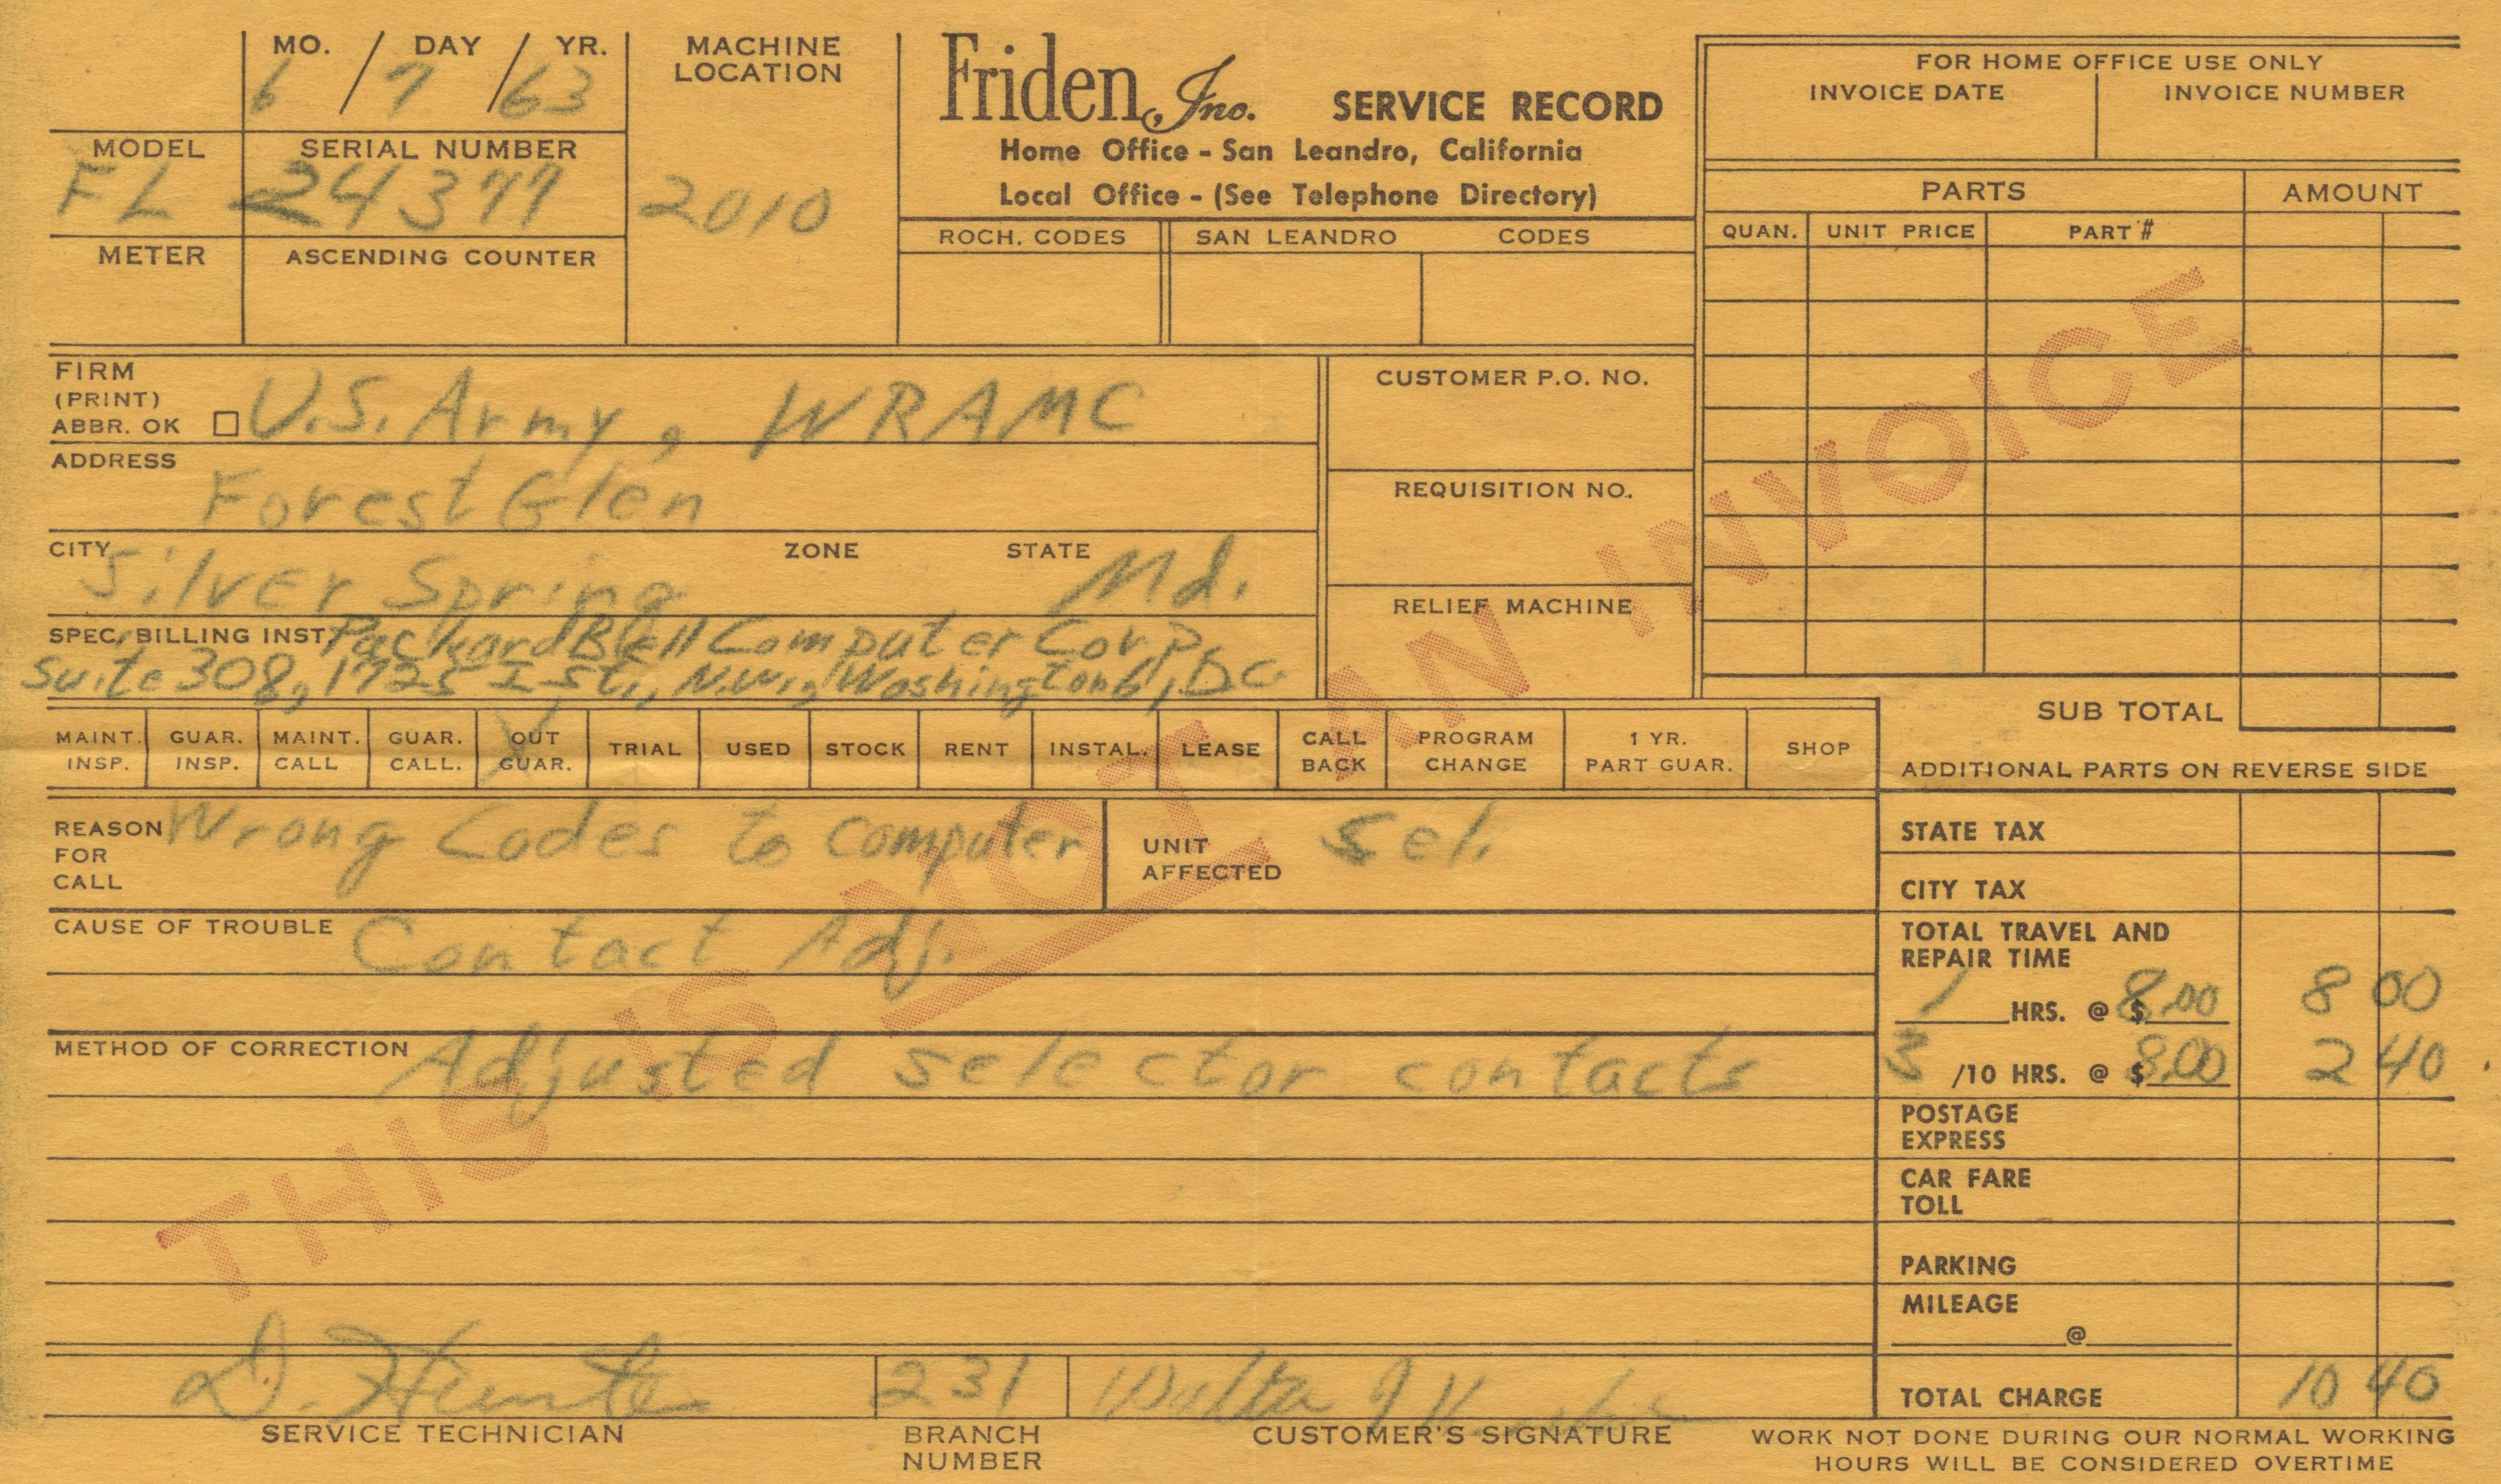 MO. / DAY / YR.
6 / 7 / 63
MACHINE
LOCATION
2010
MODEL
FL
SERIAL NUMBER
24377
METER
ASCENDING COUNTER
Friden, Inc. SERVICE RECORD
Home Office - San Leandro, California
Local Office - (See Telephone Directory)
ROCH. CODES SAN LEANDRO CODES
FOR HOME OFFICE USE ONLY
INVOICE DATE INVOICE NUMBER
PARTS AMOUNT
QUAN. UNIT PRICE PART #
FIRM
(PRINT)
ABBR. OK U.S. Army, WRAMC
ADDRESS
Forest Glen
CITY ZONE STATE
Silver Spring Md.
SPEC. BILLING INST. Packard Bell Computer Corp.
Suite 308, 1725 I St., N.W., Washington 6, D.C.
CUSTOMER P.O. NO.
REQUISITION NO.
RELIEF MACHINE
SUB TOTAL
ADDITIONAL PARTS ON REVERSE SIDE
MAINT. INSP.
GUAR. INSP.
MAINT. CALL
GUAR. CALL.
X OUT GUAR.
TRIAL
USED
STOCK
RENT
INSTAL.
LEASE
CALL BACK
PROGRAM CHANGE
1 YR. PART GUAR.
SHOP
REASON
FOR
CALL
Wrong Codes to Computer
UNIT
AFFECTED
Sel.
CAUSE OF TROUBLE Contact Adj.
METHOD OF CORRECTION Adjusted selector contacts
STATE TAX
CITY TAX
TOTAL TRAVEL AND
REPAIR TIME
1 HRS. @ $ 8.00 8 00
3 /10 HRS. @ $ 8.00 2 40
POSTAGE
EXPRESS
CAR FARE
TOLL
PARKING
MILEAGE
@
TOTAL CHARGE 10 40
THIS IS NOT AN INVOICE
D. Hunter
SERVICE TECHNICIAN
231
BRANCH
NUMBER
Walter J
CUSTOMER'S SIGNATURE
WORK NOT DONE DURING OUR NORMAL WORKING
HOURS WILL BE CONSIDERED OVERTIME